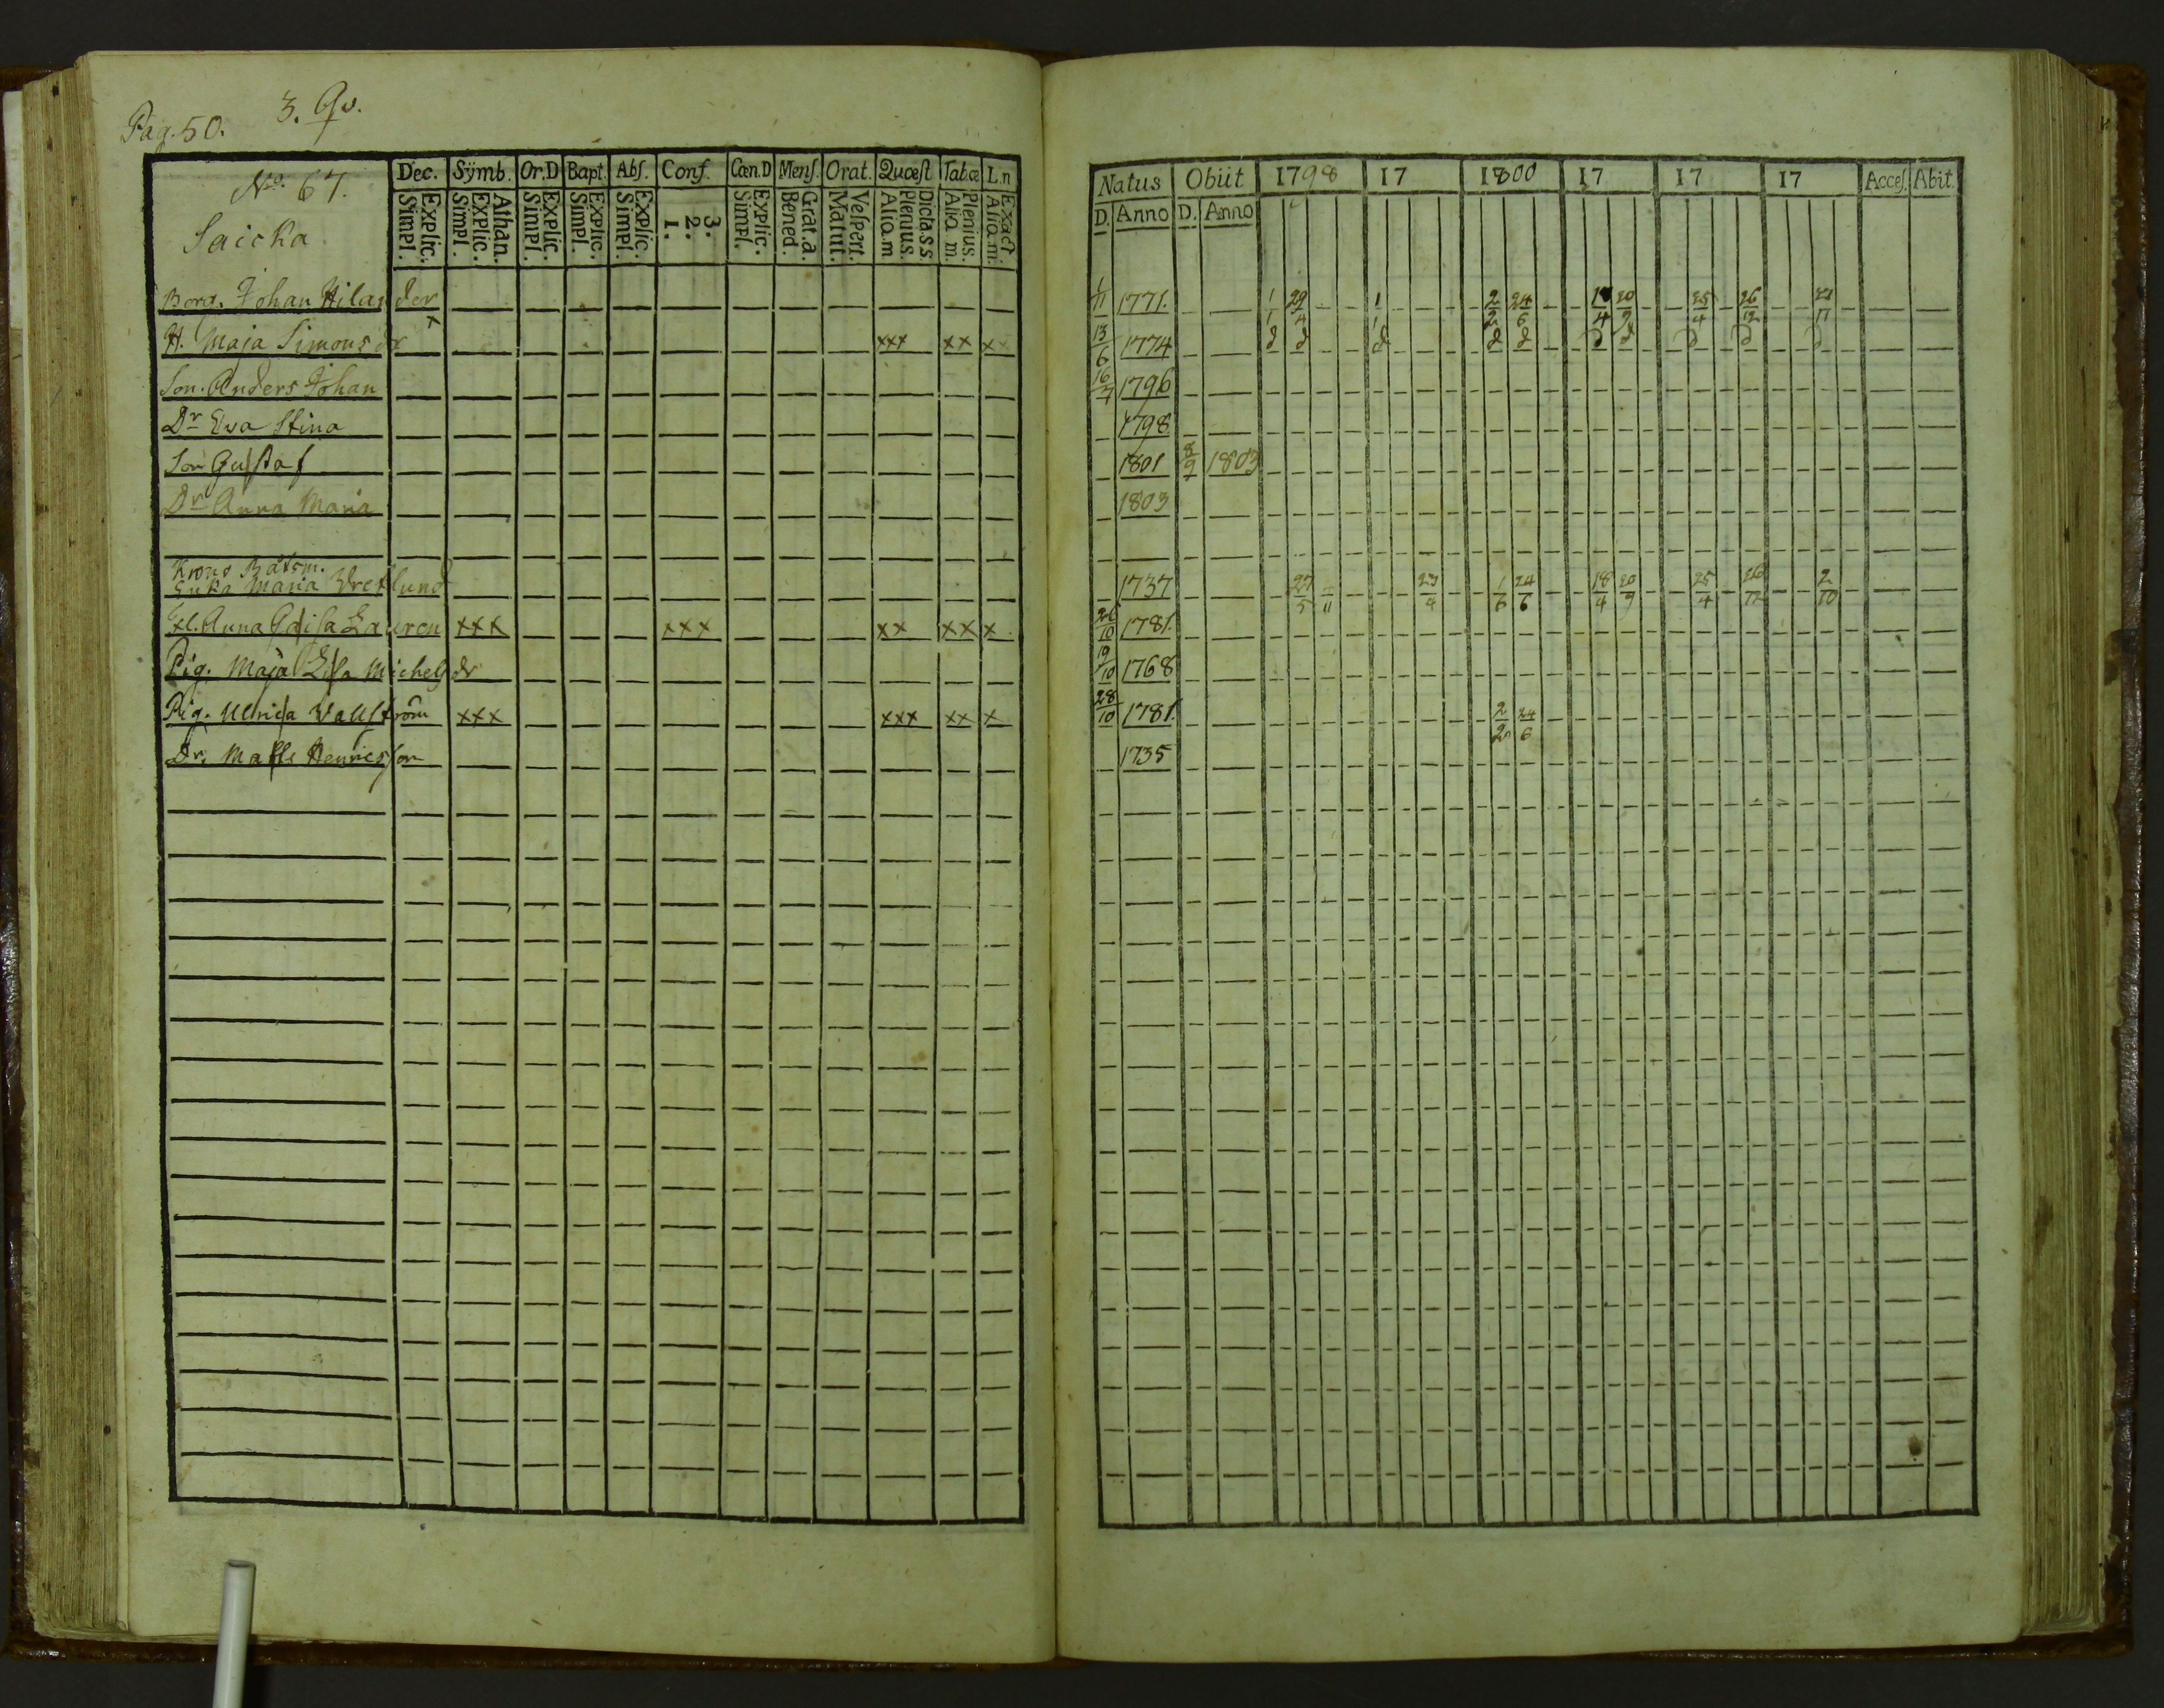 Pag. 50. 3. Qv.
No. 67. Dec. Sÿmb. Or.D Bapt. Abſ. Conf. Cœn.D Menſ. Orat. Quœſt Tab.œ L.n
Saicka
Explic. Simpl. Athan. Explic. Simpl. Explic. Simpl. Explic. Simpl. Explic. Simpl. 3. 2. 1. Explic. Simpl. Grat.a. Bened. Veſpert. Matut. Dicta s.s. Plenius. Alia.m Plenius. Alia m. Exact. Alia.m.
Bord. Johan Hilander
x
H. Maja Simons dr xxx xx x
Son. Anders Johan
Dr Ewa Stina
Son Guſtaf
Dr Anna Maria
Krono Båtsm.
Enka Maria Vretlund
Fl. Anna Caiſa Lauren xxx xxx xx xx x
Pig. Maja Liſa Michelsdr
Pig. Ulrica Vallſtröm xxx xxx xx x
Dr. Matts Henricsſon
Natus Obiit 1798 17 1800 17 17 17 Acceſ. Abit.
D. Anno D. Anno
1/11 1771. 1/1 29/4 1/1 2/2 24/6 18/4 20/9 25/4 26/12 21/11
13/6 1774 d d d d d d d d d d
16/7 1796
1798
1801 8/9 1803
1803
1737 27/5 23/4 1/6 24/6 18/4 20/9 25/4 26/12 2/10
26/10 1781.
19/10 1768
28/10 1781. 2/2 24/6
1735